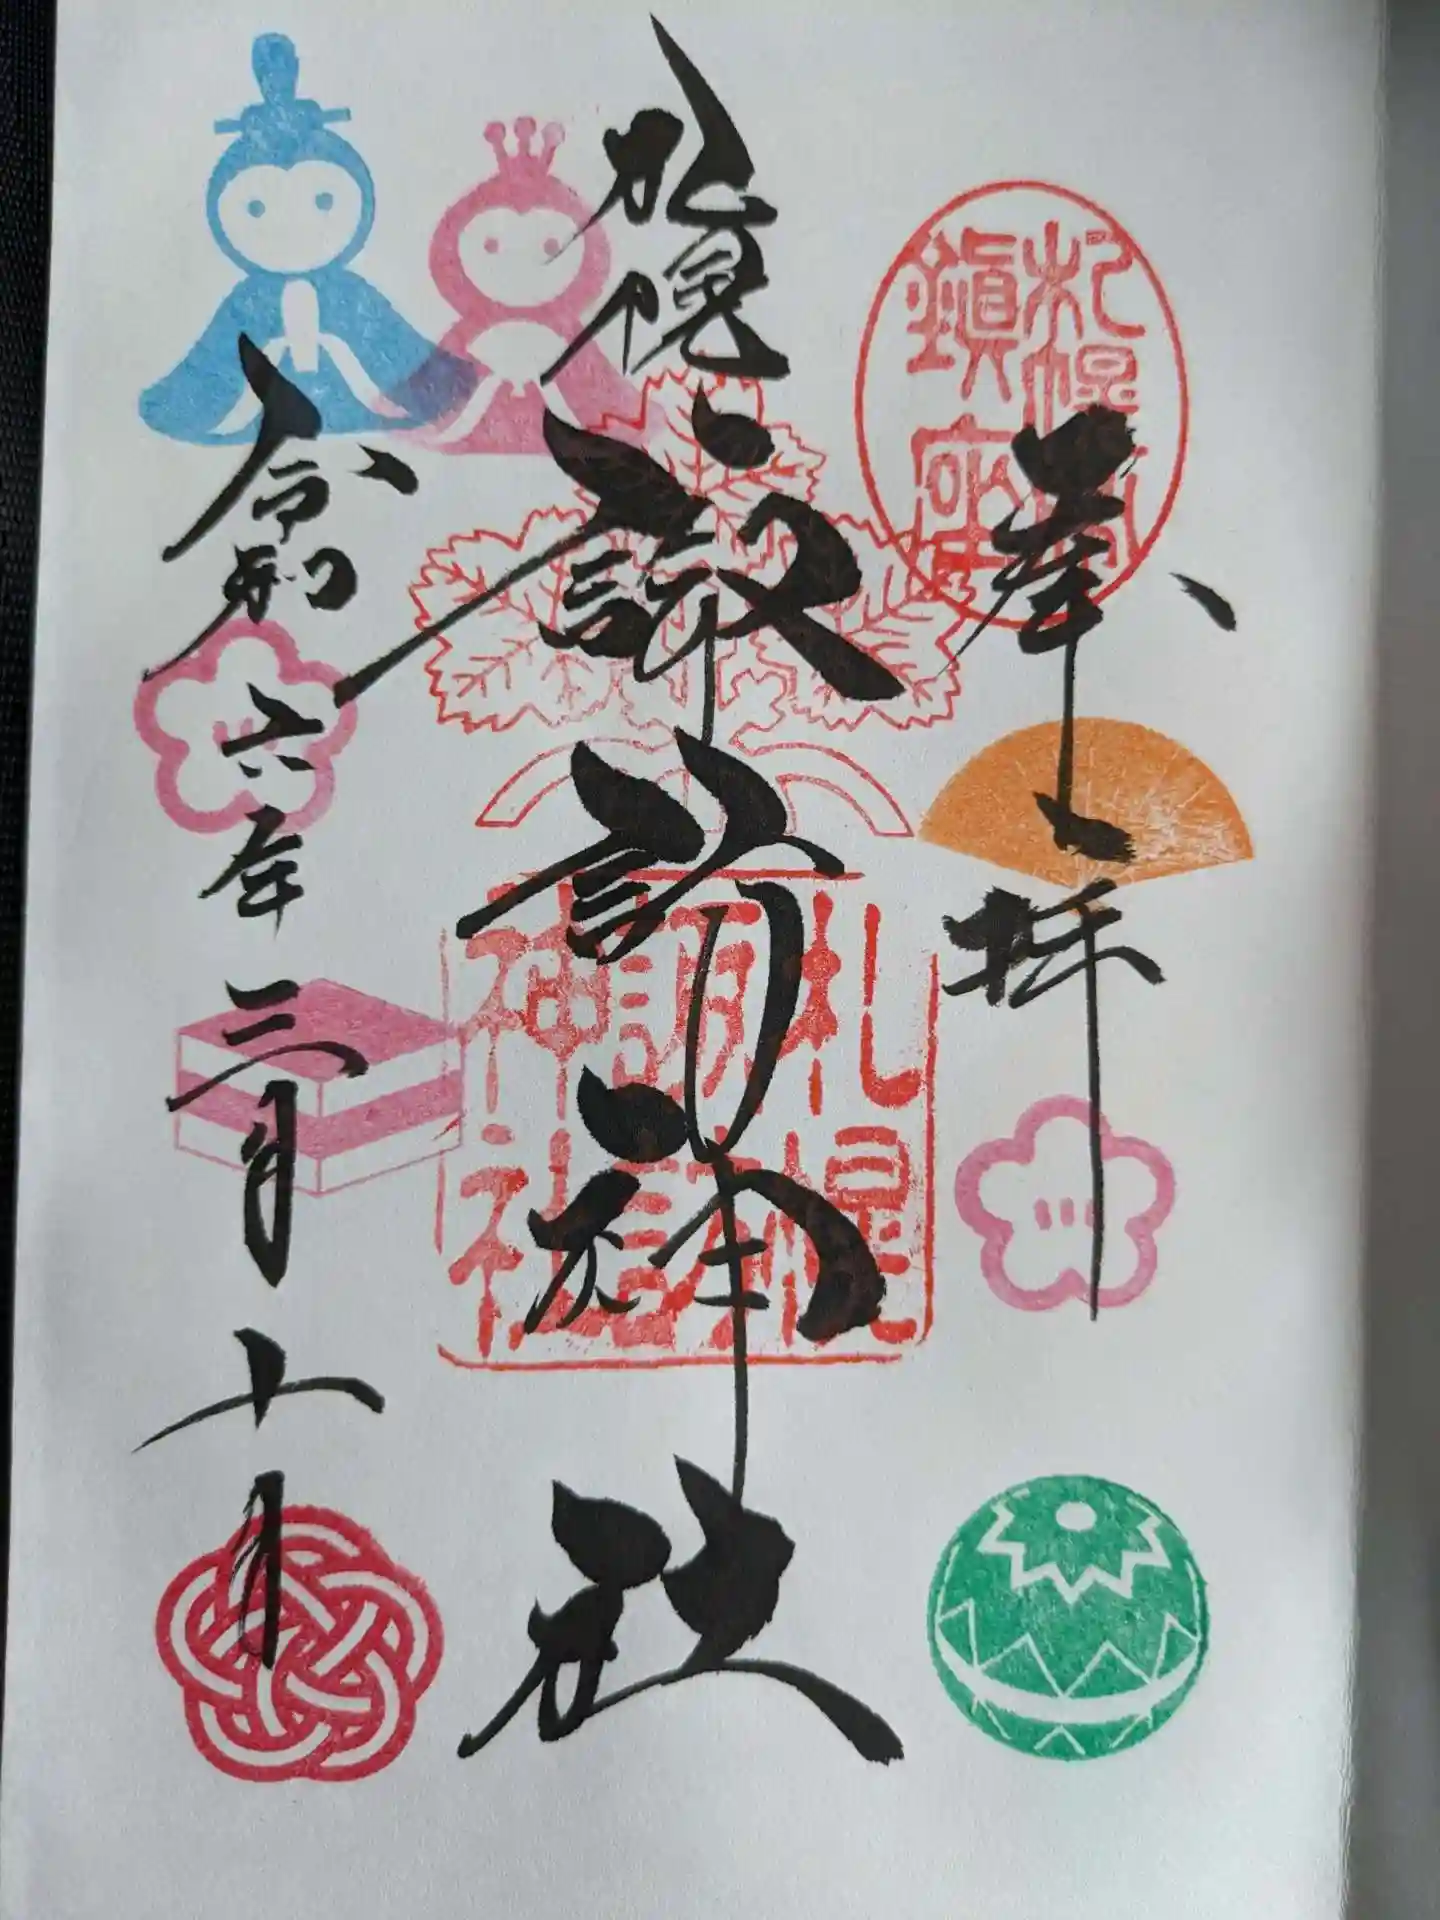 奉拝
札幌
諏訪神社
令和六年三月十日
鎮座
札幌
諏訪
神社